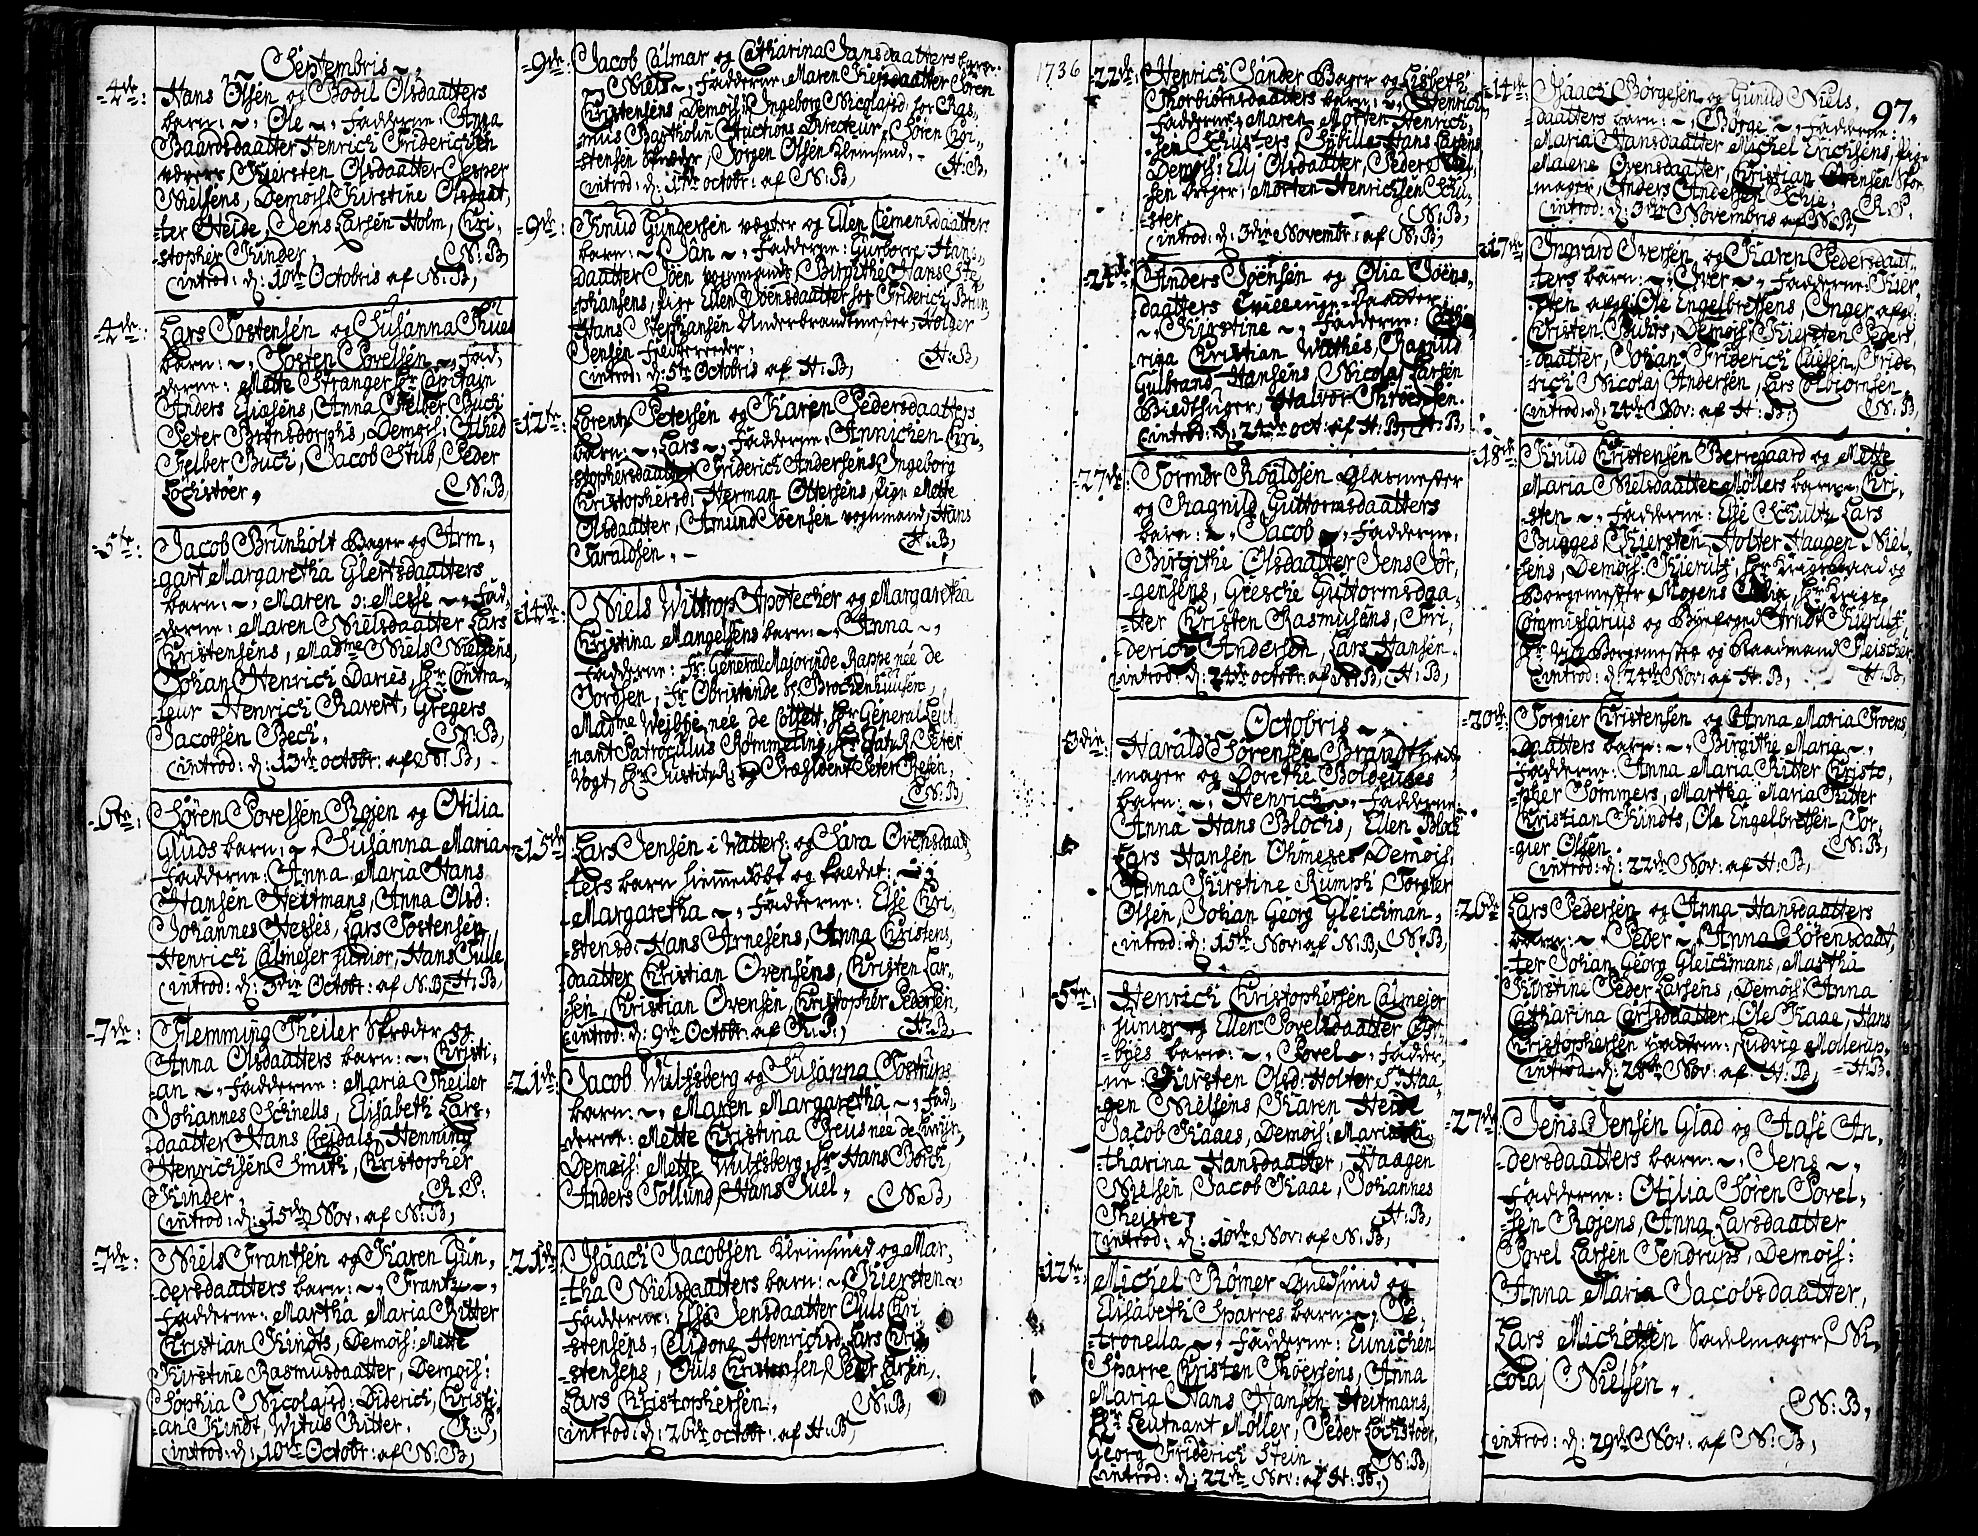 Septembris
4de Hans Olsen og Bodil Olsdaatters
barn: Ole, Fadderne: Anna
Baardsdaatter Henrich Friderichsen
Kiersten Olsdaatter Jesper
Nielsens, Demois: Kirstine Olsdaat,
ter Heide, Jens Larsen Holm, Cri,
stopher Kinder, N:B,
introd: d: 10de Octobris af N:B,
4de Lars Tostensen og Susanna
barn: Tosten Povelsen, Fad,
derne: Mette Stranger Hr Capitain
Anders Eliasens, Anna Felber Buch
Peter Brønsdorphs, Demois: Alhed
Felber Buch, Jacob Stub, Peder
Løchstøer, N:B,
5te Jacob Brunholt Bager og Arm,
gart Margaretha Glertsdaatters
barn: Maren Fad,
derne: Maren Nielsdaatter Lars
Christensens, Madme Niels Nielsens,
Johan Henrich Daries, Hr Contra,
leur Henrich Ravert, Gregers
Jacobsen Bech, N:B,
introd: d: 13de octobr: af N:B,
6te Søren Povelsen Røjen og Otilia
Gluds barn: Susanna Maria
Fadderne: Anna Maria Hans
Hansen Heitmans, Anna Olsd:
Johannes Hesses, Lars Tostensen,
Henrich Calmejer junior, Hans Tulle
introd: d: 3die Octobr: af N:B, H:B,
7de Flemming Theiler Skræder og
Anna Olsdaatters barn: Christi,
an, Fadderne: Maria Theiler
Johannes Schnells, Elisabeth Lars,
daatter Hans Henning
Henrichsen Smith, Christopher
Kinder, R:P:
introd: d: 15de Nov: af N:B,
7de Niels Frantsen og Karen Gun,
dersdaatters barn: Frantz,
Fadderne: Martha Maria Ritter
Christian Kindts, Demois: Mette
Kirstine Rasmusdaatter, Demois:
Sophia Nicolajsd: Diderich, Christi,
an Kindt, Witus Ritter. R:P,
introd: d: 10de Octobr: af N:B,
9de Jacob Calmar og Catharina Jansdaatters barn:
Niels, Fadderne: Maren Nielsdaatter Søren
Christensens, Demois: Ingeborg Nicolajsd: for Ras,
mus Bartholin Auctions Directeur, Søren Cri,
stensen Skræder, Jørgen Olsen Kleinsmed, H:B,
introd: d: octobr: af N:B,
9de Knud Gundersen vægter og Ellen Clemensdaatters
barn: Jan, Fadderne: Gunborg Hans,
daatter Joen vognmands, Birgithe Hans Ste,
phansens, pige Ellen Joensdaatter hos Friderich Brun
Hans Stephansen Underbrandmester, Holger
Jensen H:B,
introd: d: 5te Octobris af H:B,
12te Lorentz Petersen og Karen Pedersdaatters
barn: Lars, Fadderne: Annichen Cri,
stophersdaatter Friderich Andersens, Ingeborg
Christophersd: Herman Ottersens, pige Mette
Olsdaatter, Amund Joensen vognmand, Hans
Taraldsen, H:B,
14de Niels Wittrop Apotecher og Margaretha
Christina Mangelsens barn: Anna,
Fadderne: Fr: General Majorinde Rappe née de
Fr: Obristinde Brochenhuusen,
Madme née de Collett, Hr General Leut,
nant Patroculus Rømmeling, Peter
Vogt, Hr Justitz R: og Præsident Peter Resen,
N:B,
15de Lars Jensen i Watters: og Sara Ovensdaat,
ters barn hiemmedøbt og kaldet:
Margaretha, Fadderne: Else Cri,
stensd: Hans Arnesens, Anna Christens,
daatter Christian Ovensens, Christen Lar,
sen, Christian Ovensen, Christopher Pedersen,
introd: d: 9de Octobr: af R:P:, H:B,
21de Jacob Wulfsberg og Susanna Tostrups
barn: Maren Margaretha, Fad,
derne: Mette Christina Treus née de
Demois: Mette Wulfsberg, Hr Hans Borch,
Anders Tollund, Hans Juel, N:B,
21de Isaach Jacobsen Kleinsmed og Mar,
tha Nielsdaatters barn: Kiersten,
Fadderne: Else Jensdaatter Ouls Cri,
stensens, Henrichsd: Lars Cri,
stensens, Ouls Christensen, Peder Larsen,
Lars Christophersen, N:B,
introd: d: 26de octobr: af H:B,
1736
22de Henrich Sander Bager og Lisbeth
Thorbiørnsdaatters barn: Henrich,
Fadderne: Maren Morten Henrich,
sen Schusters, Sibilla Hans Larsens,
Demois: Elij Olsdaatter, Peder
sen børger, Morten Henrichsen Schu,
ster, N:B,
introd: d: 3die Novembr: af N:B,
24de Anders Joensen og Olia Joens,
daatters Tvillinge-daatter:
Kirstine, Fadderne:
Christian Withes, Ragnild
Gulbrand Hansens, Nicolaj Larsen
Halvor
introd: d: 24de oct: af H:B, H:B,
27de Tormor Roaldsen Glasmester
og Ragnild Guttormsdaatters
barn: Jacob, Fadderne:
Birgithe Olsdaatter Jens Jør,
gensens, Giesche Guttormsdaa,
tter Christen Rasmusens, Fri,
derich Andersen, Lars Hansen.
introd: d: 24de octobr: af N:B, H:B,
Octobris
3die Harald Sørensen Brandt hat,
mager og Dorethe Boldevigs
barn: Henrich, Fadderne:
Anna Hans Blochs, Ellen Bloch
Lars Hansen Demois:
Anna Kirstine Rumph, Torgier
Olsen, Johan Georg Gleichman,
introd: d: 15de Nov: af N:B, N:B,
5te Henrich Christophersen Calmejer
junior og Ellen Povelsdaatter
byes barn: Povel, Fadder,
ne: Kirsten Olsd: Holter, Sr Haa,
gen Nielsens, Karen Heide
Jacob Kaaes, Demois: Maria Ca,
tharina Hansdaatter, Haagen
Nielsen, Jacob Kaae, Johannes
Theiste, H:B,
introd: d: 10de Nov: af N:B,
12te Michel Rømer Guldsmed og
Elisabeth Sparres barn: Pe,
tronella, Fadderne: Eunichen
Sparre Christen Thøersens, Anna
Maria Hans Hansen Heitmans,
Hr Leutnant Møller, Peder Løchstøer,
Georg Friderich Stein, N:B,
introd: d: 22de Nov: af H:B,
97.
14de Isaach Børgesen og Gunild Niels,
daatters barn: Børge, Fadderne:
Maria Hansdaatter Michel Erichsens, pige
Malene Ovensdaatter, Christian Ovensen
mager, Anders Andersen R:P:
introd: d: 3die Novembris af N:B,
17de Ingvard Iversen og Karen Pedersdaat,
ters barn: Iver, Fadderne: Kier,
sten afg: Ole Engelbretsens, Inger afg:
Christen Demois: Kiersten Peders,
daatter, Johan Friderich Clausen, Fride,
rich Nicolaj Andersen, Lars Olbiørnsen
introd: d: 24de Nov: af H:B, N:B,
18de Knud Christensen Berregaard og Mette
Maria Nielsdaatter Møllers barn: Cri,
sten, Fadderne: Else Schultz Lars
Bugges, Kiersten Holter Haagen Niel,
sens, Demois: Kierulf, Hr Krigsraad og
Borgemester Mogens Hr Krigs,
Commissarius og Byefoged Arndt Kierulf,
Hr Borgemester og Raadmand Fleischer,
introd: d: 24de Nov: af H:B, H:B,
20de Torgier Christensen og Anna Maria Troens,
daatters barn: Birgithe Maria,
Fadderne: Anna Maria Ritter Christo,
pher Sommers, Martha Maria Ritter
Christian Kindts, Ole Engelbretsen, Tor,
gier Olsen. N:B,
introd: d: 22de Nov: af H:B,
26de Lars Pedersen og Anna Hansdaatters
barn: Peder, Anna Sørensdaat,
ter Johan Georg Gleichmans, Martha
Kirstine Peder Larsens, Demois: Anna
Catharina Carlsdaatter, Ole Kaae, Hans
Christophersen Ludvig Møllerup,
introd: d: 28de Nov: af H:B, H:B,
27de Jens Jensen Glad og Aase An,
dersdaatters barn: Jens,
Fadderne: Otilia Søren Povel,
sen Røjens, Anna Larsdaatter
Povel Larsen Tendrups, Demois:
Anna Maria Jacobsdaatter,
Lars Michelsen Sadelmager, Ni,
colaj Nielsen,
N:B,
introd: d: 29de Nov: af N:B,